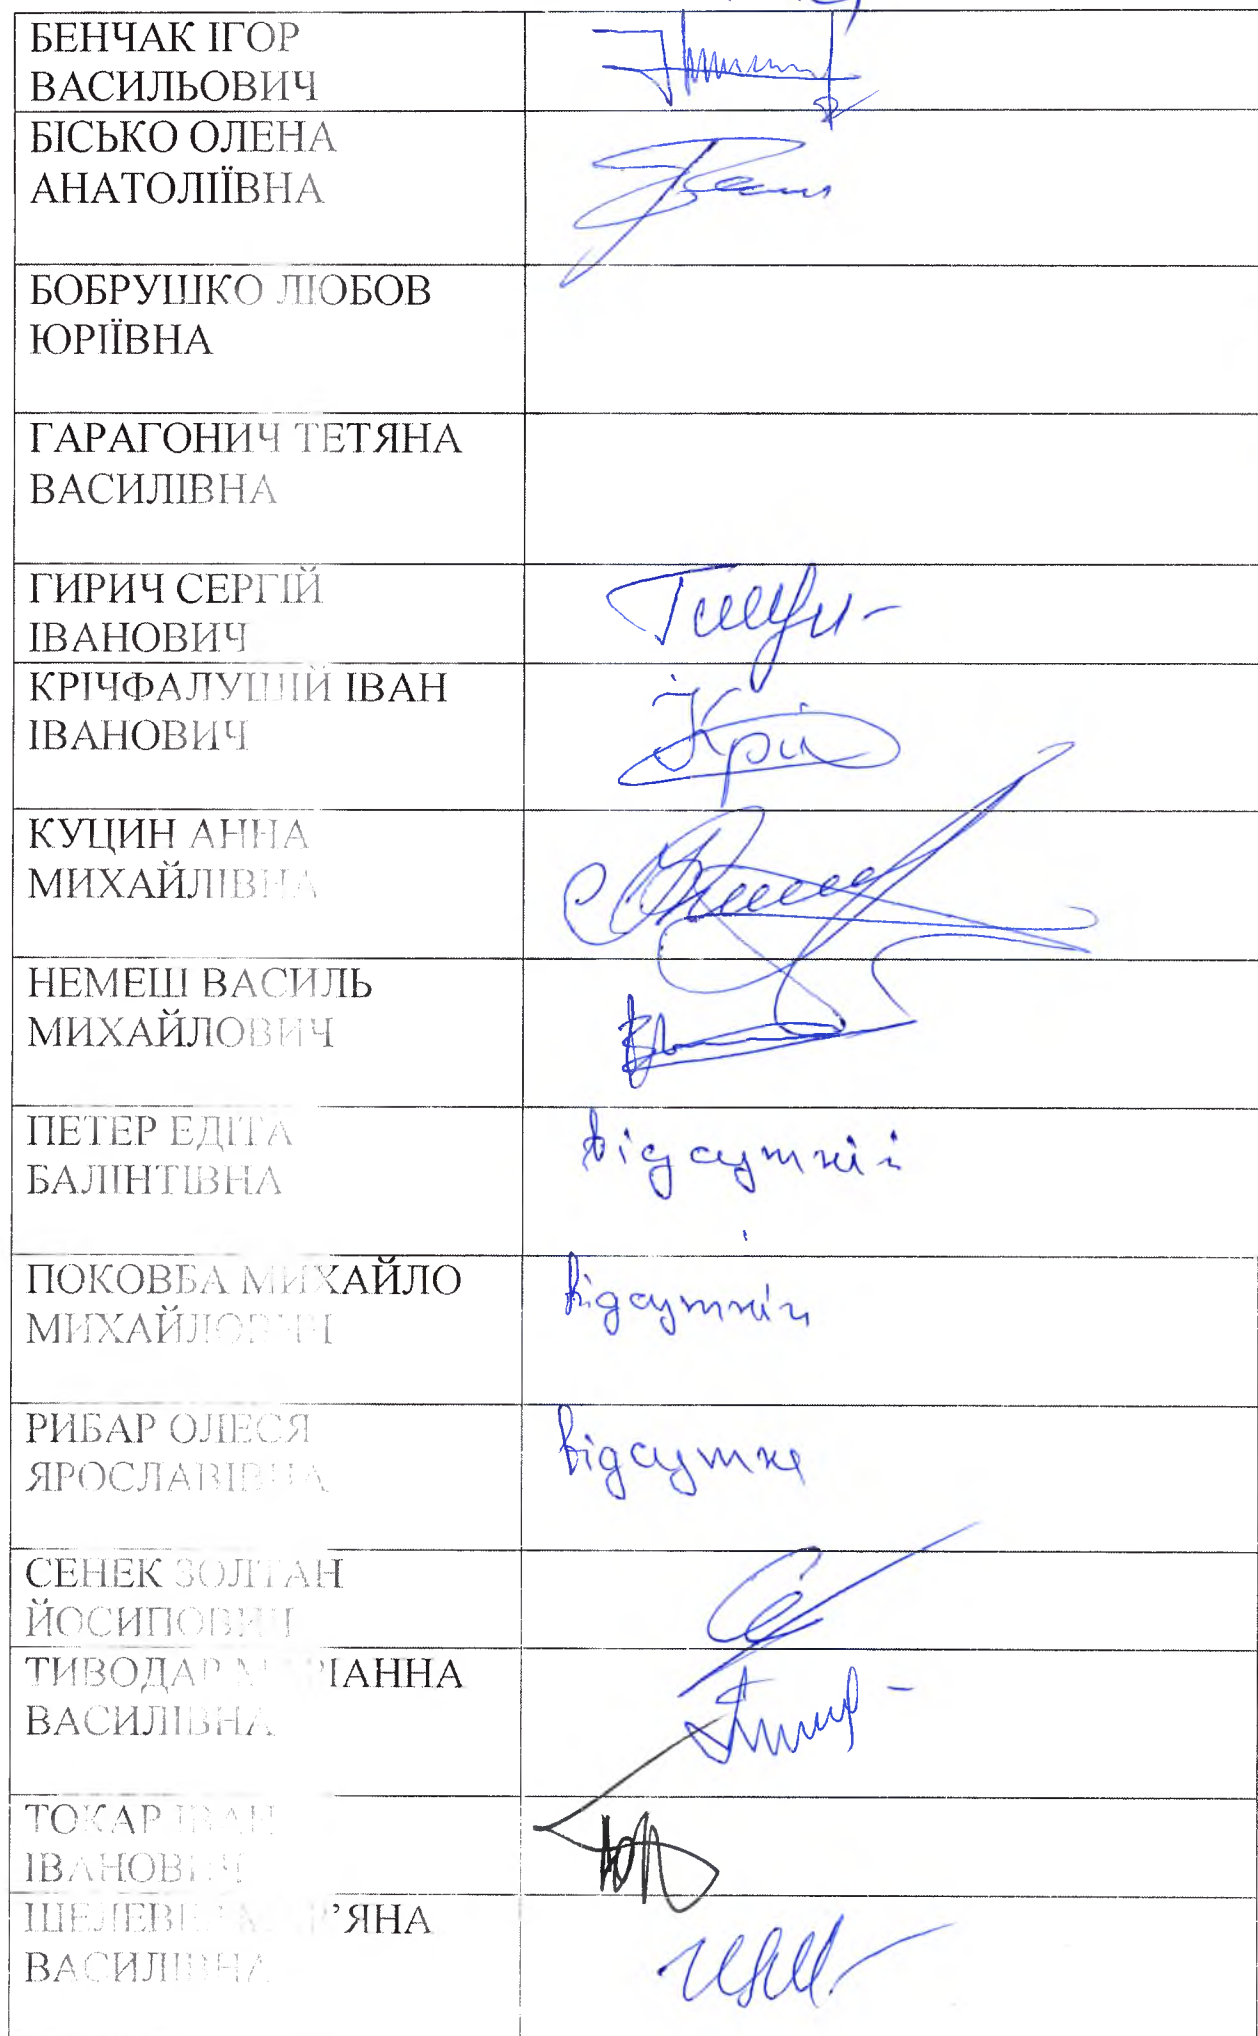 БЕНЧАК ІГОР
ВАСИЛЬОВИЧ
БІСЬКО ОЛЕНА
АНАТОЛІЇВНА
БОБРУШКО ЛЮБОВ
ЮРІЇВНА
ГАРАГОНИЧ ТЕТЯНА
ВАСИЛІВНА
ГИРИЧ СЕРГІЙ
ІВАНОВИЧ
КРІЧФАЛУШІЙ ІВАН
ІВАНОВИЧ
Крі
КУЦИН АННА
МИХАЙЛІВНА
НЕМЕШ ВАСИЛЬ
МИХАЙЛОВИЧ
ПЕТЕР ЕДІТА
БАЛІНТІВНА
відсутній
ПОКОВБА МИХАЙЛО
МИХАЙЛОВИЧ
відсутній
РИБАР ОЛЕСЯ
ЯРОСЛАВІВНА
відсутня
СЕНЕК ЗОЛТАН
ЙОСИПОВИЧ
ТИВОДАР МАРІАННА
ВАСИЛІВНА
ТОКАР ІВАН
ІВАНОВИЧ
МАР'ЯНА
ВАСИЛІВНА